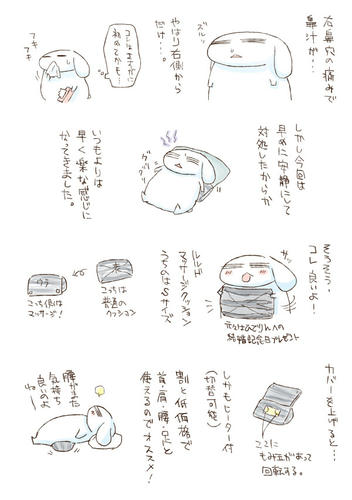 右鼻穴の痛みで
鼻汁が…
ズルッ
やはり右側から
だけ…。
コレはまずかに
初めてかも…
フキ
フキ
しかし今回は
早めに安静にして
対処したからか
グッタリ
いつもよりは
早く楽な感じに
なってきました。
そろそろ！
コレ良いよ！
元々はひでりんへの
結婚記念日プレゼント
ルルド
マッサージクッション
うちのはSサイズ
表
こっちは
普通の
クッション
ウラ
こっち側は
マッサージ！
カバーを上げると…
ここに
もみ玉があって
回転する。
しかもヒーター付
（切替可能）
割と低価格で
首・肩・腰・足と
使えるのでオススメ！
腰がまた
気持ち
良いのよ
ねー